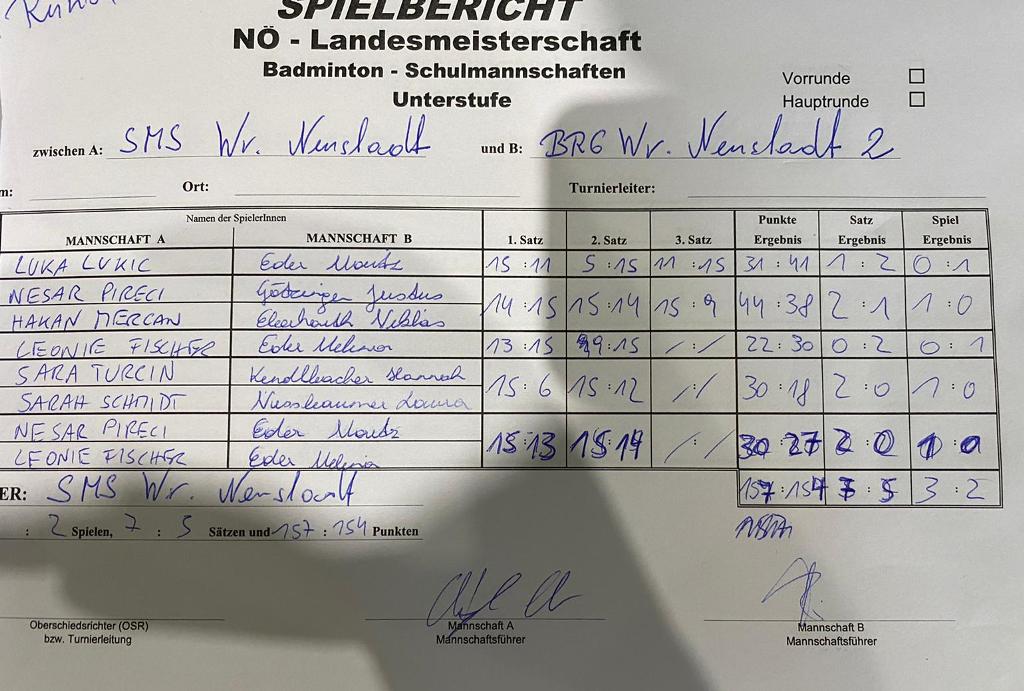 SPIELBERICHT
NÖ - Landesmeisterschaft
Badminton - Schulmannschaften
Unterstufe
Vorrunde
Hauptrunde
zwischen A: SMS Wr. Neustadt und B: BRG Wr. Neustadt 2
Ort: Turnierleiter:
Namen der SpielerInnen
MANNSCHAFT A MANNSCHAFT B 1. Satz 2. Satz 3. Satz Punkte Ergebnis Satz Ergebnis Spiel Ergebnis
LUKA LUKIC Eder Moritz 15 : 11 5 : 15 11 : 15 31 : 41 1 : 2 0 : 1
NESAR PIRECI Götzinger Justus 14 : 15 15 : 14 15 : 9 44 : 38 2 : 1 1 : 0
HAKAN MERCAN Niklas
LEONIE FISCHER Eder Melina 13 : 15 9 : 15 / : / 22 : 30 0 : 2 0 : 1
SARA TURCIN Kendlbacher Hannah 15 : 6 15 : 12 / : / 30 : 18 2 : 0 1 : 0
SARAH SCHMIDT Nussbaumer Laura
NESAR PIRECI Eder Moritz 15 : 13 15 : 14 / : / 30 27 2 0 1 0
LEONIE FISCHER Eder Melina
157 : 154 7 : 5 3 : 2
ER: SMS Wr. Neustadt
: 2 Spielen, 7 : 5 Sätzen und 157 : 154 Punkten
Oberschiedsrichter (OSR) Mannschaft A Mannschaft B
bzw. Turnierleitung Mannschaftsführer Mannschaftsführer